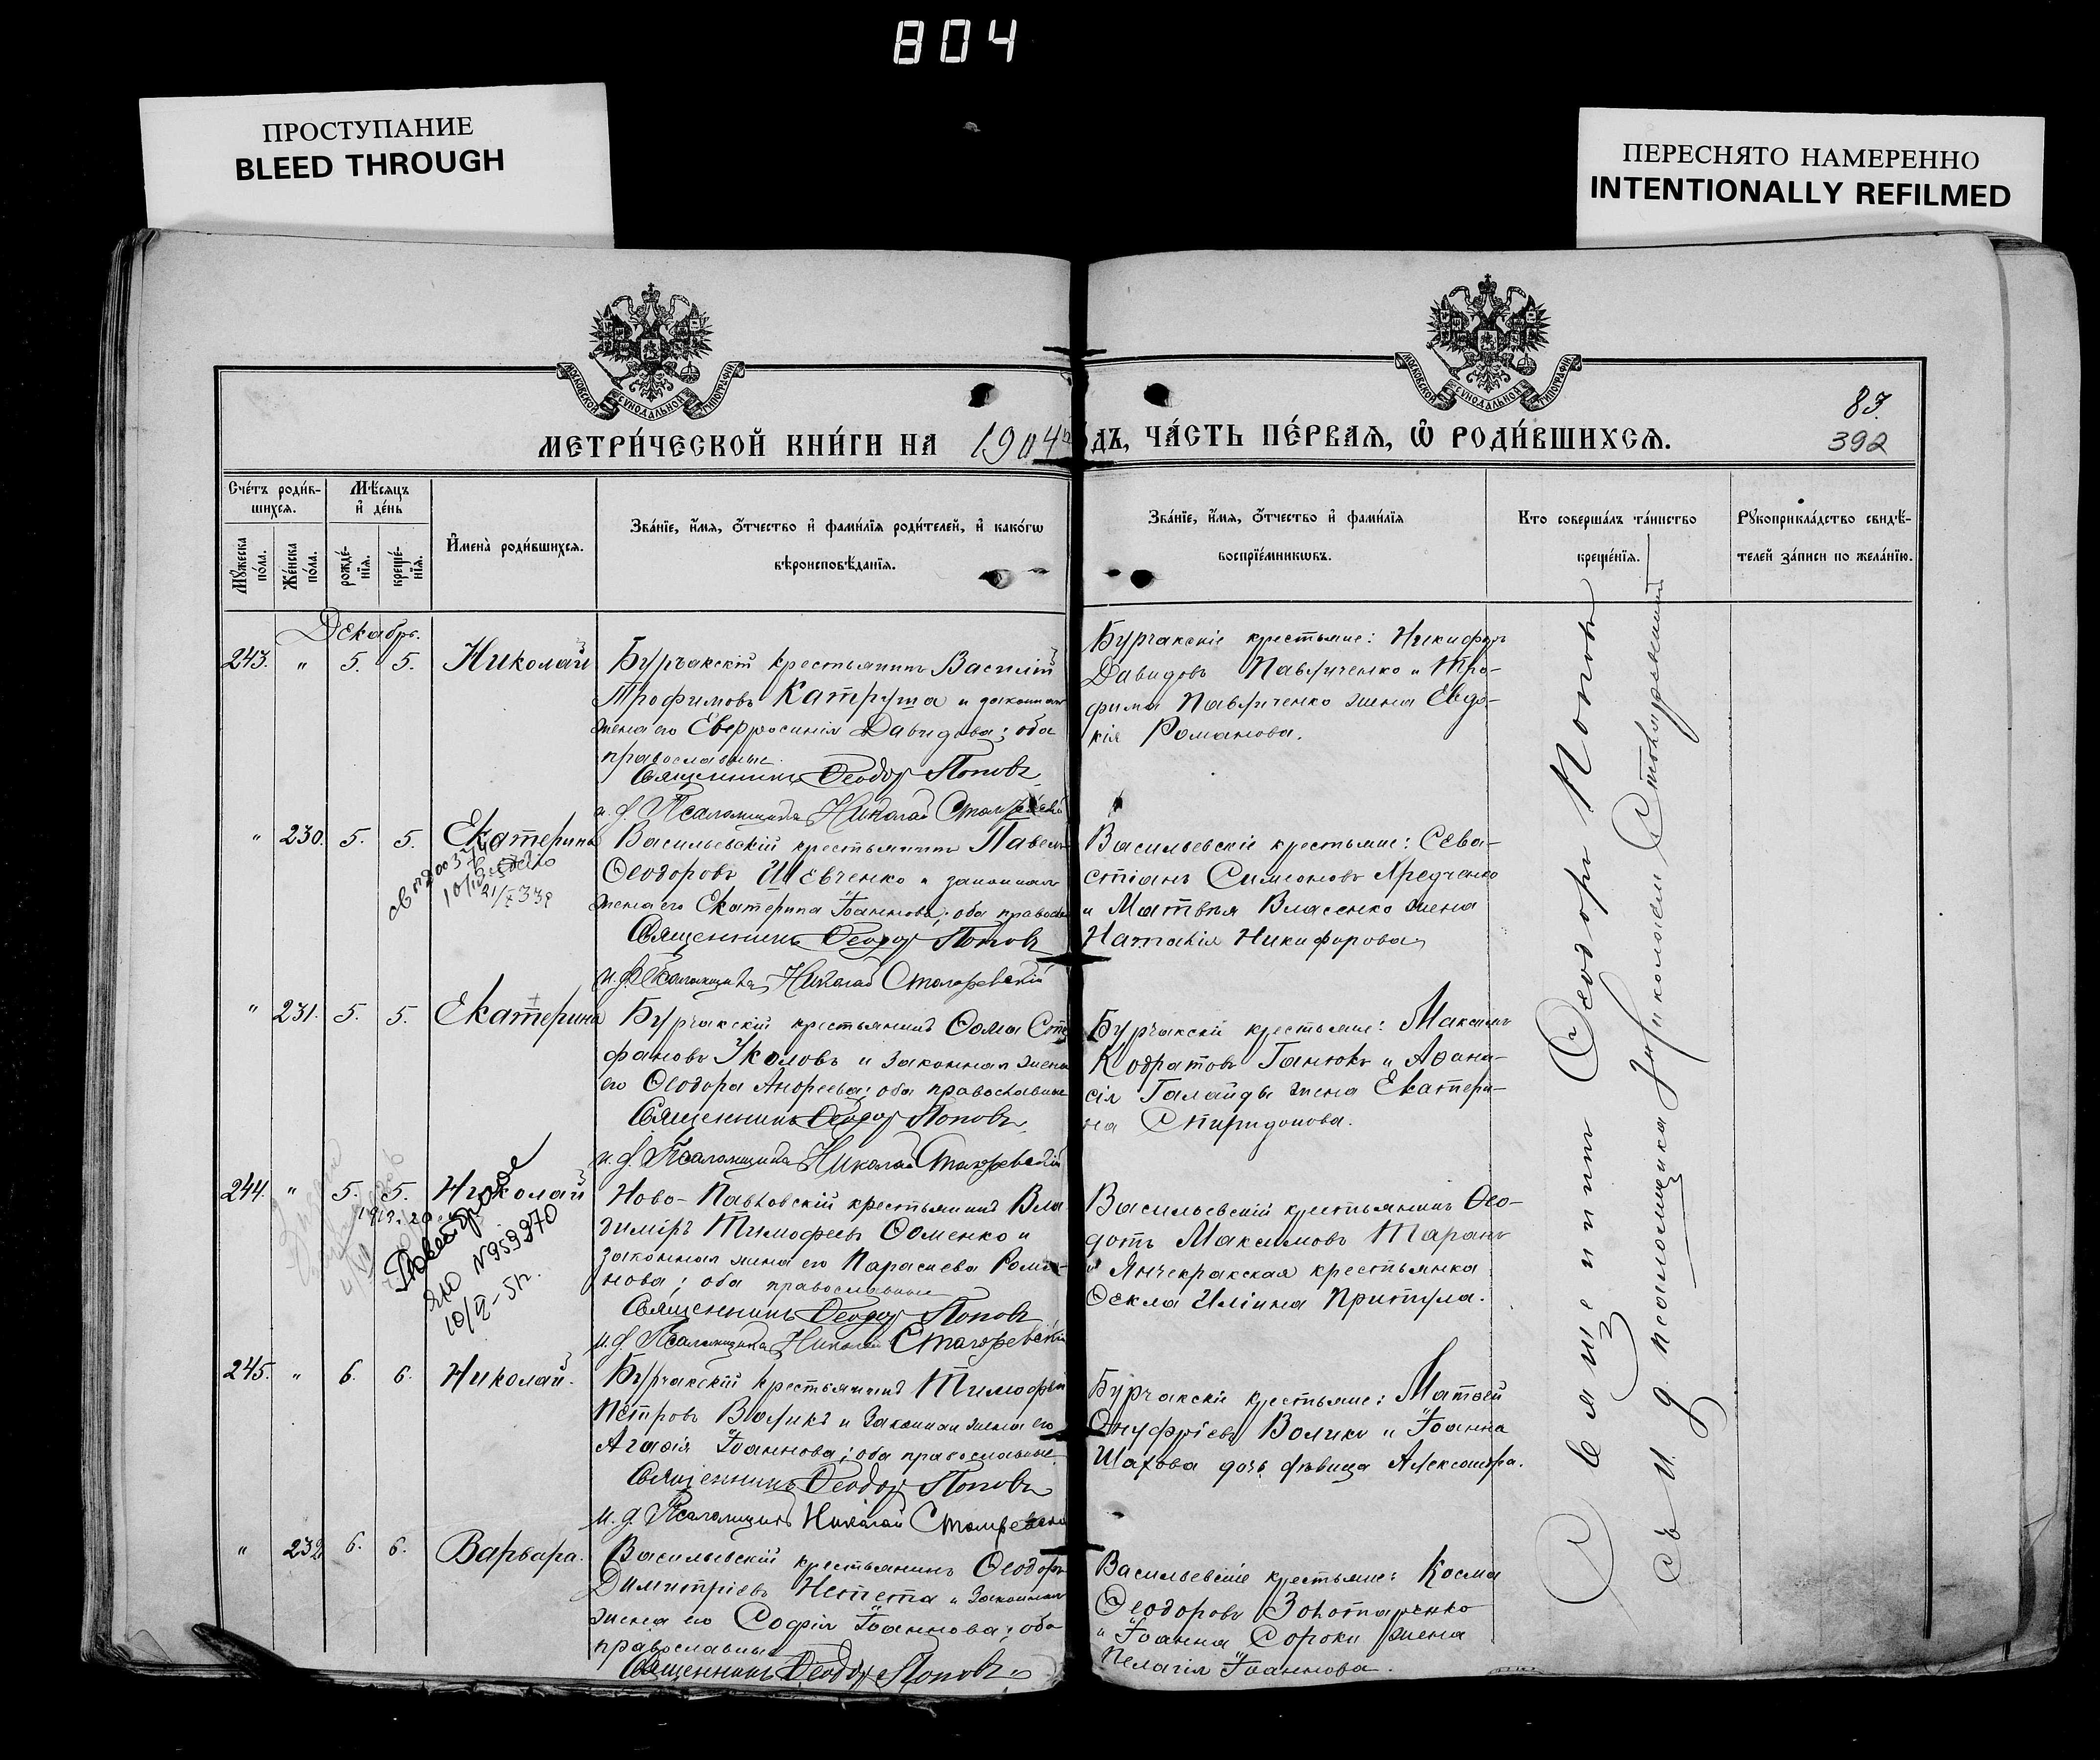 804
ПРОСТУПАНИЕ
BLEED THROUGH
ПЕРЕСНЯТО НАМЕРЕННО
INTENTIONALLY REFILMED
МОСКОВСКОЙ СѴНОДАЛЬНОЙ ТИПОГРАФІИ
МОСКОВСКОЙ СѴНОДАЛЬНОЙ ТИПОГРАФІИ
83.
МЕТРИ́ЧЕСКОЙ КНИ́ГИ НА 1904 ДЪ, ЧА́СТЬ ПЕ́РВАЯ, Ѡ РОДИ́ВШИХСЯ.
392
Сче́тъ роди́вшихся.
Мꙋ́жеска по́ла.
Же́нска по́ла.
Мѣ́сяцъ и҆ де́нь
рожде́нїя.
креще́нїя.
И҆мена̀ роди́вшихся.
Зва́нїе, и҆́мя, ѻ҆́тчество и҆ фами́лїя роди́телей, и҆ како́гѡ
вѣроисповѣ́данїя.
Зва́нїе, и҆́мя, ѻ҆́тчество и҆ фами́лїя
воспрїе́мникѡвъ.
Кто соверша́лъ та́инство
креще́нїя.
Рꙋкоприкла́дство свидѣ́-
телей за́писи по жела́нїю.
Декабрь.
243. " 5. 5. Николай
Бурчакскій крестьянинъ Василій
Трофимовъ Катруша и законная
жена его Евфросинія Давидова; оба
православные.
Священникъ Ѳеодоръ Поповъ
и. д. Псаломщика Николай
Бурчакскіе крестьяне: Никифоръ
Давидовъ Павличенко и Тро-
фима Павличенко жена Евдо-
кія Романова.
" 230. 5. 5. Екатерина
Васильевскій крестьянинъ Павелъ
Ѳеодоровъ Шевченко и законная
жена его Екатерина Іоаннова; оба правосл
Священникъ Ѳеодоръ Поповъ
и. д. Псаломщика Николай
Васильевскіе крестьяне: Сева-
стіанъ Симеоновъ
и Матвѣя Власенко жена
Наталія Никифорова
" 231. 5. 5. Екатерина
Бурчакскій крестьянинъ Ѳома Сте
фановъ Уколовъ и законная жена
его Ѳеодора Андреева; оба православные
Священникъ Ѳеодоръ Поповъ
и. д. Псаломщика Николай
Бурчакскіе крестьяне: Максимъ
Кодратовъ Ганюкъ и Аѳана-
сія Галайды жена Екатери-
на Спиридонова.
244. " 5. 5. Николай
N959370
10/II-51г.
Ново-Павловскій крестьянинъ Вла
димиръ Тимоѳеевъ Ѳоменко и
законная жена его Параскева Рома-
нова; оба православные
Священникъ Ѳеодоръ Поповъ
и. д. Псаломщика Николай
Васильевскій крестьянинъ Ѳео-
дотъ Максимовъ Таранъ
и Янчекракская крестьянка
Ѳекла Иліина Притула.
245. " 6. 6. Николай.
Бурчакскій крестьянинъ Тимоѳей
Петровъ Воликъ и законная жена его
Агаѳія Іоаннова; оба православные
Священникъ Ѳеодоръ Поповъ
и. д. Псаломщика Николай
Бурчакскіе крестьяне: Матѳей
Онуфріевъ Воликъ и Іоанна
Шахова дочь дѣвица Александра.
" 232 6. 6. Варвара.
Васильевскій крестьянинъ Ѳеодоръ
Димитріевъ Непета и законная
жена его Софія Іоаннова; оба
православные
Священникъ Ѳеодоръ Поповъ
Васильевскіе крестьяне: Косма
Ѳеодоровъ Золотаренко
и Іоанна Сороки жена
Пелагія Іоаннова.
Священникъ Ѳеодоръ Поповъ
съ и. д. псаломщика Николаемъ